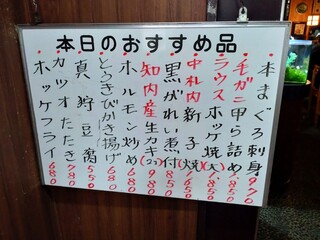 本日のおすすめ品
本まぐろ刺身 970
毛ガニ甲ら詰め 850
ラウスホッケ焼(大) 1,850
中札内新子焼 1,650
黒がれい煮付 850
知内産生カキ(2ヶ) 980
ホルモン炒め 680
とうきびかき揚げ 680
真狩豆腐 550
カツオたたき 780
ホッケフライ 680